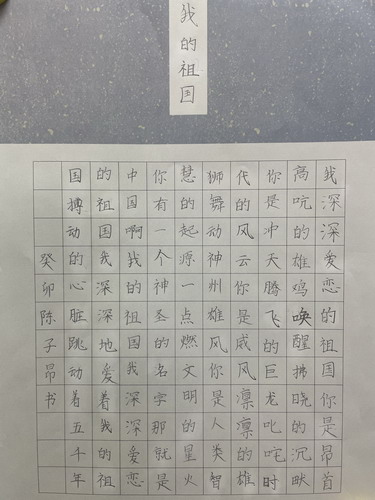 我的祖国
我深深爱恋的祖国你是昂首
高吭的雄鸡唤醒拂晓的沉
你是冲天腾飞的巨龙叱咤时
代的风云你是威风凛凛的雄
狮舞动神州雄风你是人类智
慧的起源一点燃文明的星火
你有一个神圣的名字那就是
中国啊我的祖国我深深爱恋
的祖国我深深地爱着我的祖
国搏动的心脏跳动着五千年
癸卯陈子昂书